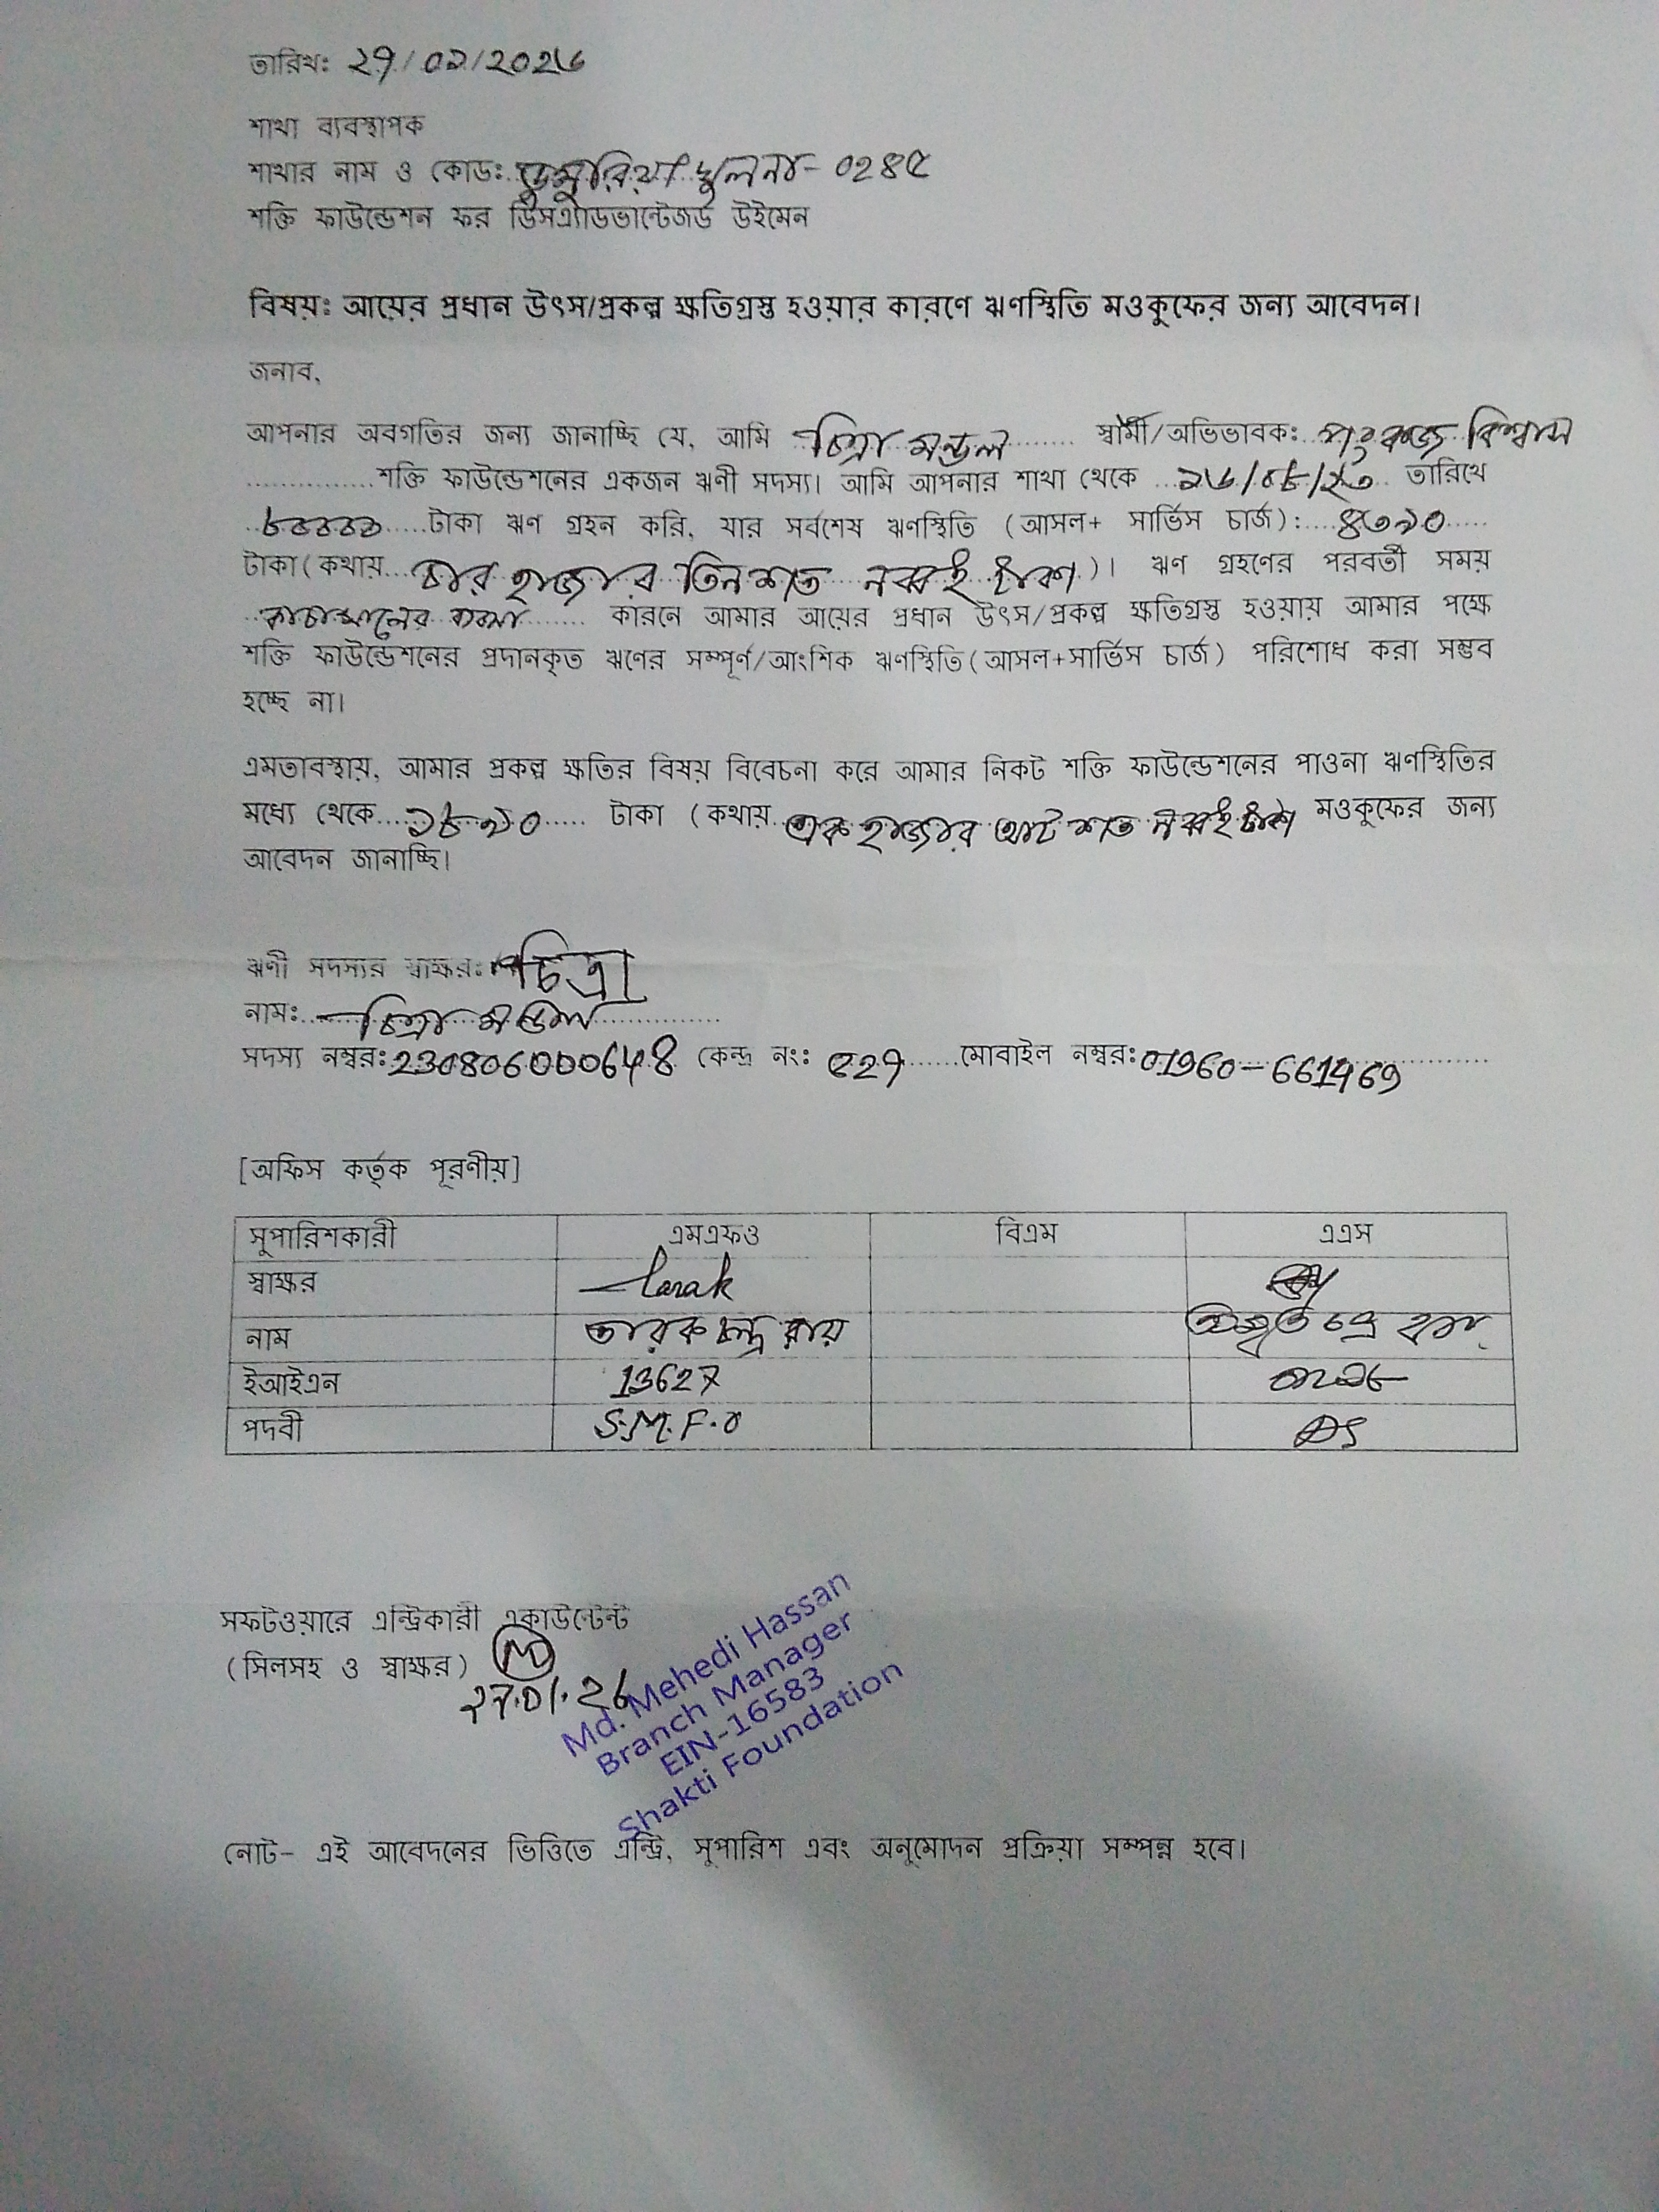 তারিখঃ ২৭/০১/২০২৬
শাখা ব্যবস্থাপক
শাখার নাম ও কোডঃ ডুমুরিয়া খুলনা- ০২৪৫
শক্তি ফাউন্ডেশন ফর ডিসএ্যাডভান্টেজড উইমেন
বিষয়ঃ আয়ের প্রধান উৎস/প্রকল্প ক্ষতিগ্রস্ত হওয়ার কারণে ঋণস্থিতি মওকুফের জন্য আবেদন।
জনাব,
আপনার অবগতির জন্য জানাচ্ছি যে, আমি চিত্রা মন্ডল স্বামী/অভিভাবকঃ পংকজ বিশ্বাস
শক্তি ফাউন্ডেশনের একজন ঋণী সদস্য। আমি আপনার শাখা থেকে ১৬/০৮/২৩ তারিখে
৮০০০০ টাকা ঋণ গ্রহন করি, যার সর্বশেষ ঋণস্থিতি (আসল+ সার্ভিস চার্জ): ৪৩৯০
টাকা(কথায় চার হাজার তিনশত নব্বই টাকা)। ঋণ গ্রহণের পরবর্তী সময়
কাচামালের ব্যবসা কারনে আমার আয়ের প্রধান উৎস/প্রকল্প ক্ষতিগ্রস্ত হওয়ায় আমার পক্ষে
শক্তি ফাউন্ডেশনের প্রদানকৃত ঋণের সম্পূর্ণ/আংশিক ঋণস্থিতি(আসল+সার্ভিস চার্জ) পরিশোধ করা সম্ভব
হচ্ছে না।
এমতাবস্থায়, আমার প্রকল্প ক্ষতির বিষয় বিবেচনা করে আমার নিকট শক্তি ফাউন্ডেশনের পাওনা ঋণস্থিতির
মধ্যে থেকে ১৮৯০ টাকা (কথায় এক হাজার আট শত নব্বই টাকা মওকুফের জন্য
আবেদন জানাচ্ছি।
ঋণী সদস্যর স্বাক্ষরঃ চিত্রা
নামঃ চিত্রা মন্ডল
সদস্য নম্বরঃ 230806000648 কেন্দ্র নংঃ ৫২৭ মোবাইল নম্বরঃ 01960-661469
[অফিস কর্তৃক পূরণীয়]
সুপারিশকারী এমএফও বিএম এএস
স্বাক্ষর Tarak
নাম তারক চন্দ্র রায় চন্দ্র
ইআইএন 13627
পদবী S.M.F.O AS
সফটওয়ারে এন্ট্রিকারী একাউন্টেন্ট
(সিলসহ ও স্বাক্ষর) M
27.01.26
Md. Mehedi Hassan
Branch Manager
EIN-16583
Shakti Foundation
নোট- এই আবেদনের ভিত্তিতে এন্ট্রি, সুপারিশ এবং অনুমোদন প্রক্রিয়া সম্পন্ন হবে।